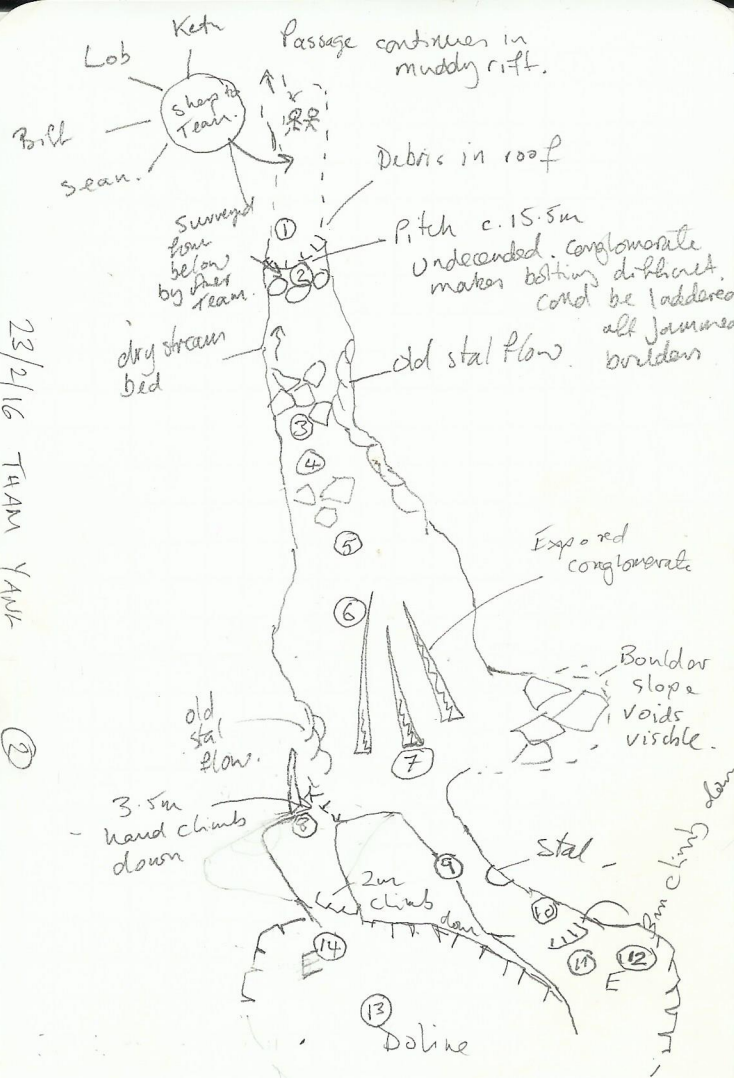 Keth
Lob
Biff
Sean.
Team.
Passage continues in
muddy rift.
Debris in roof
①
Surveyed
from
below
by
Team.
②
Pitch c. 15.5m
Undecended. Conglomerate
makes bolting difficult.
Could be laddered
off Jammed
boulders
dry stream
bed
old stal flow.
③
④
⑤
⑥
Exposed
conglomerate
Boulder
slope
voids
visible.
old
stal
flow.
⑦
3.5m
hand climb
down
⑧
⑨
Stal
2m
climb
down
⑩
3m climb down
⑪
⑫
E
⑭
E
⑬
Doline
23/2/16 THAM YANK ②